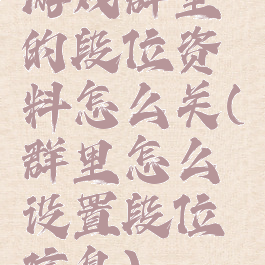 游戏群里
的段位资
料怎么关(
群里怎么
设置段位
信息)